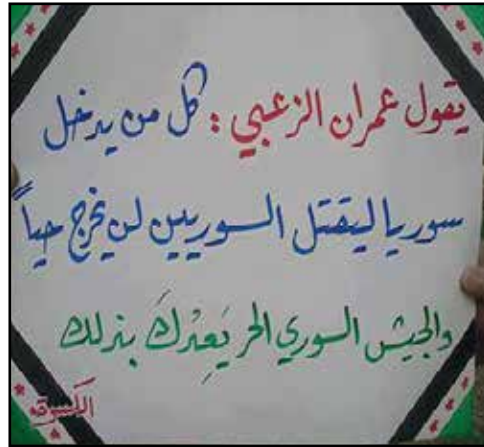 يقول عمران الزعبي : كل من يدخل
سوريا ليقتل السوريين لن يخرج حياً
والجيش السوري الحر يَعِدُكَ بذلك
الكسوة